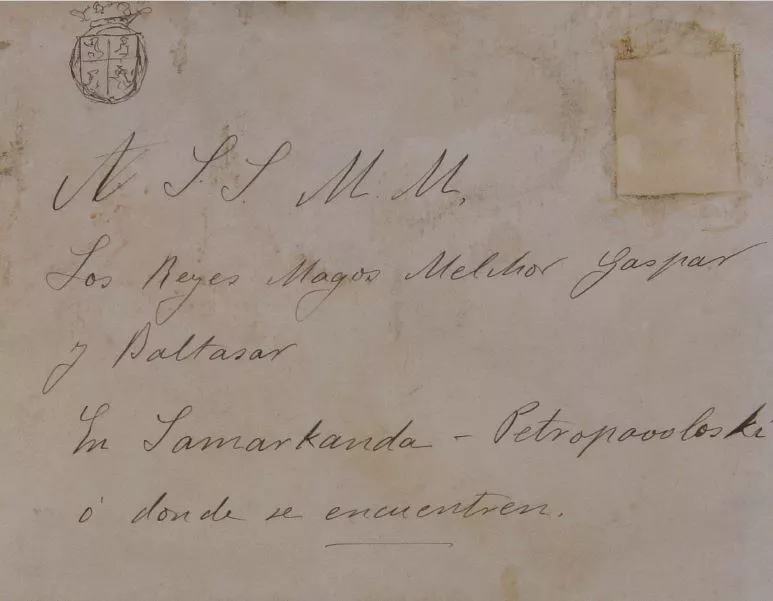 A S.S. M.M.
Los Reyes Magos Melchor Gaspar
y Baltasar
En Samarkanda - Petropavoloski
ó donde se encuentren.